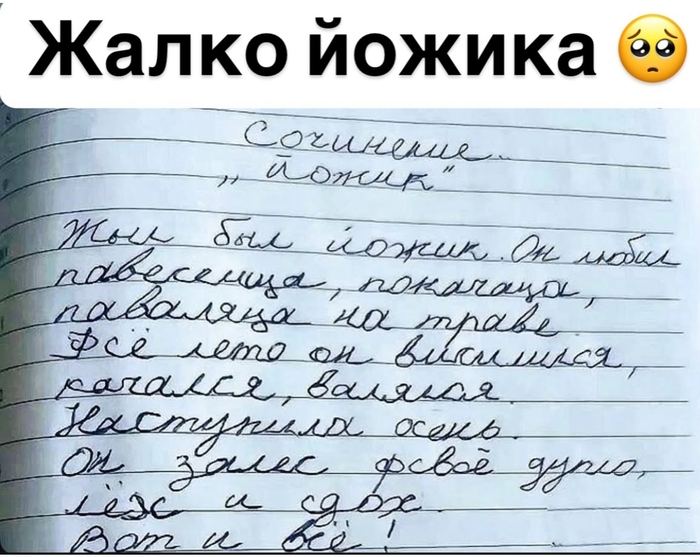 Жалко йожика 🥺
Сочинение.
„Йожик“
Жыл был йожик. Он любил
павеселица, покачаца,
паваляца на траве.
Фсё лето он висилился,
качался, валялся.
Наступила осень.
Он залес фсваё дупло,
лёж и сдох.
Вот и всё!